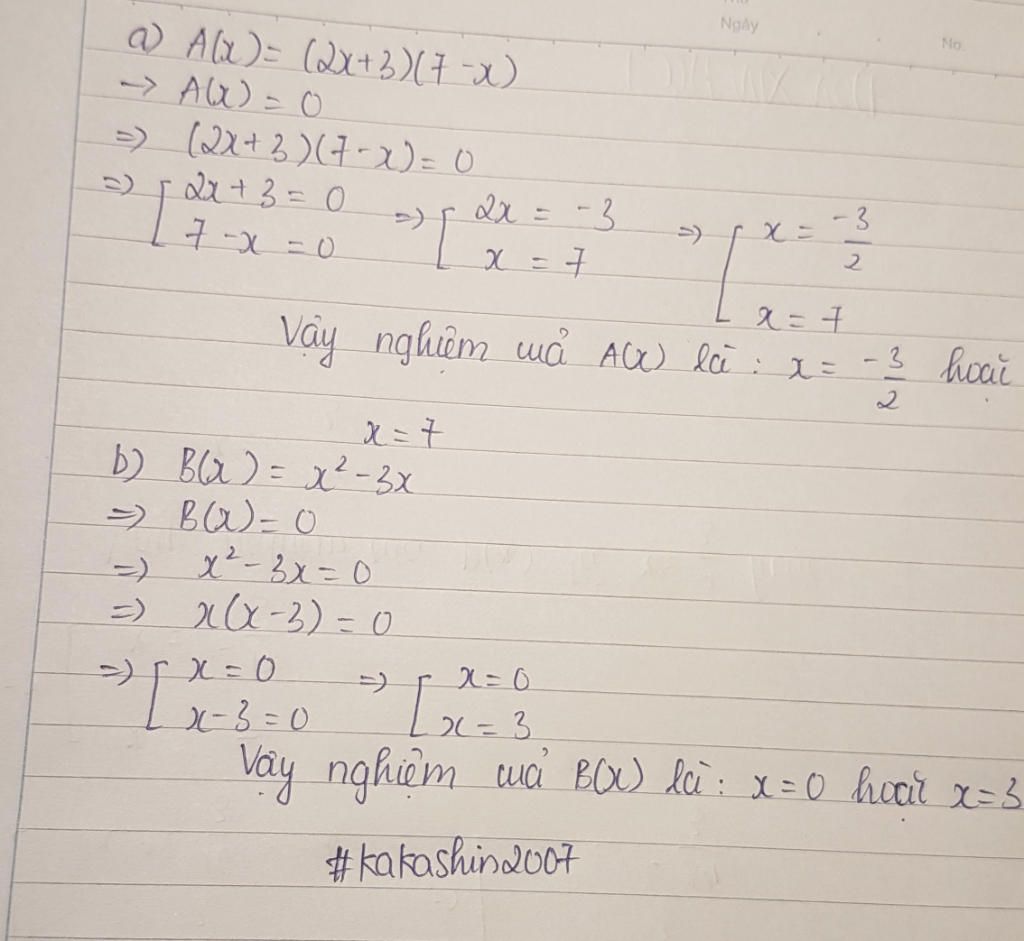 Ngày
No.
a) A(x) = (2x+3)(7-x)
→ A(x) = 0
=> (2x+3)(7-x) = 0
=> [ 2x+3 = 0 => [ 2x = -3 => [ x = -3/2
7-x = 0 x = 7 x = 7
Vậy nghiệm của A(x) là : x = -3/2 hoặc
x = 7
b) B(x) = x² - 3x
=> B(x) = 0
=> x² - 3x = 0
=> x(x-3) = 0
=> [ x = 0 => [ x = 0
x-3 = 0 x = 3
Vậy nghiệm của B(x) là : x=0 hoặc x=3
#kakashin2007